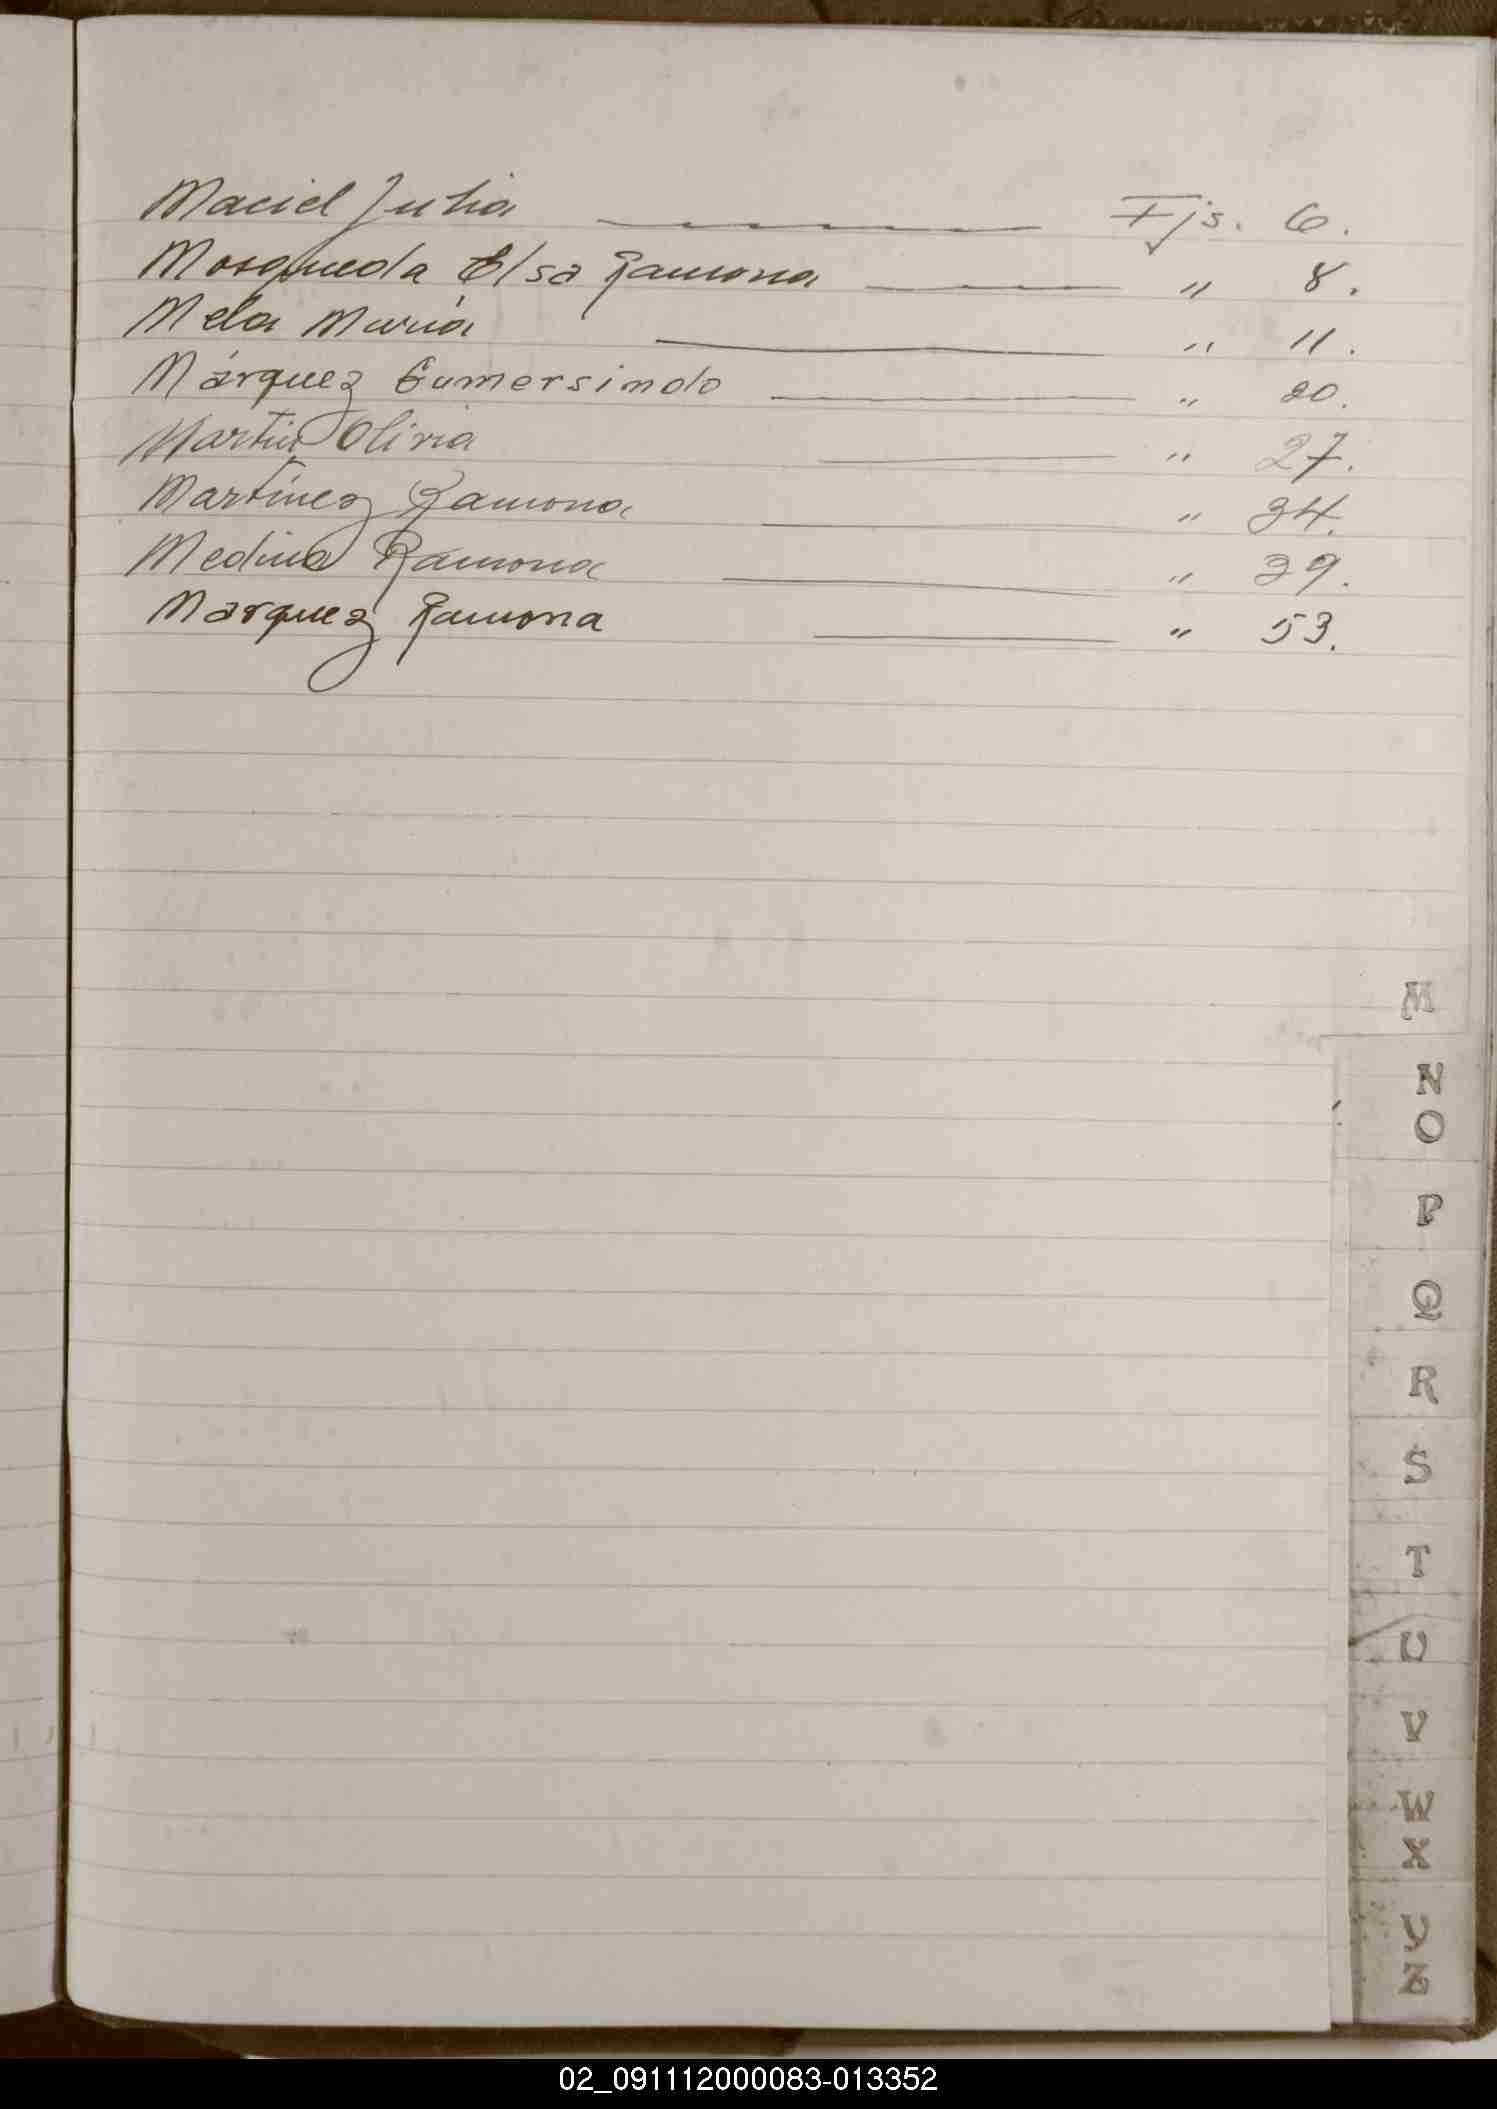 Maciel Julia ———— Fjs. 6.
Mosqueda Elsa Ramona ———— " 8.
Mela María ———— " 11.
Márquez Gumersindo ———— " 20.
Martin Olivia ———— " 27.
Martínez Ramona ———— " 34.
Medina Ramona ———— " 39.
Marquez Ramona ———— " 53.
M
N
O
P
Q
R
S
T
U
V
W
X
Y
Z
02_091112000083-013352